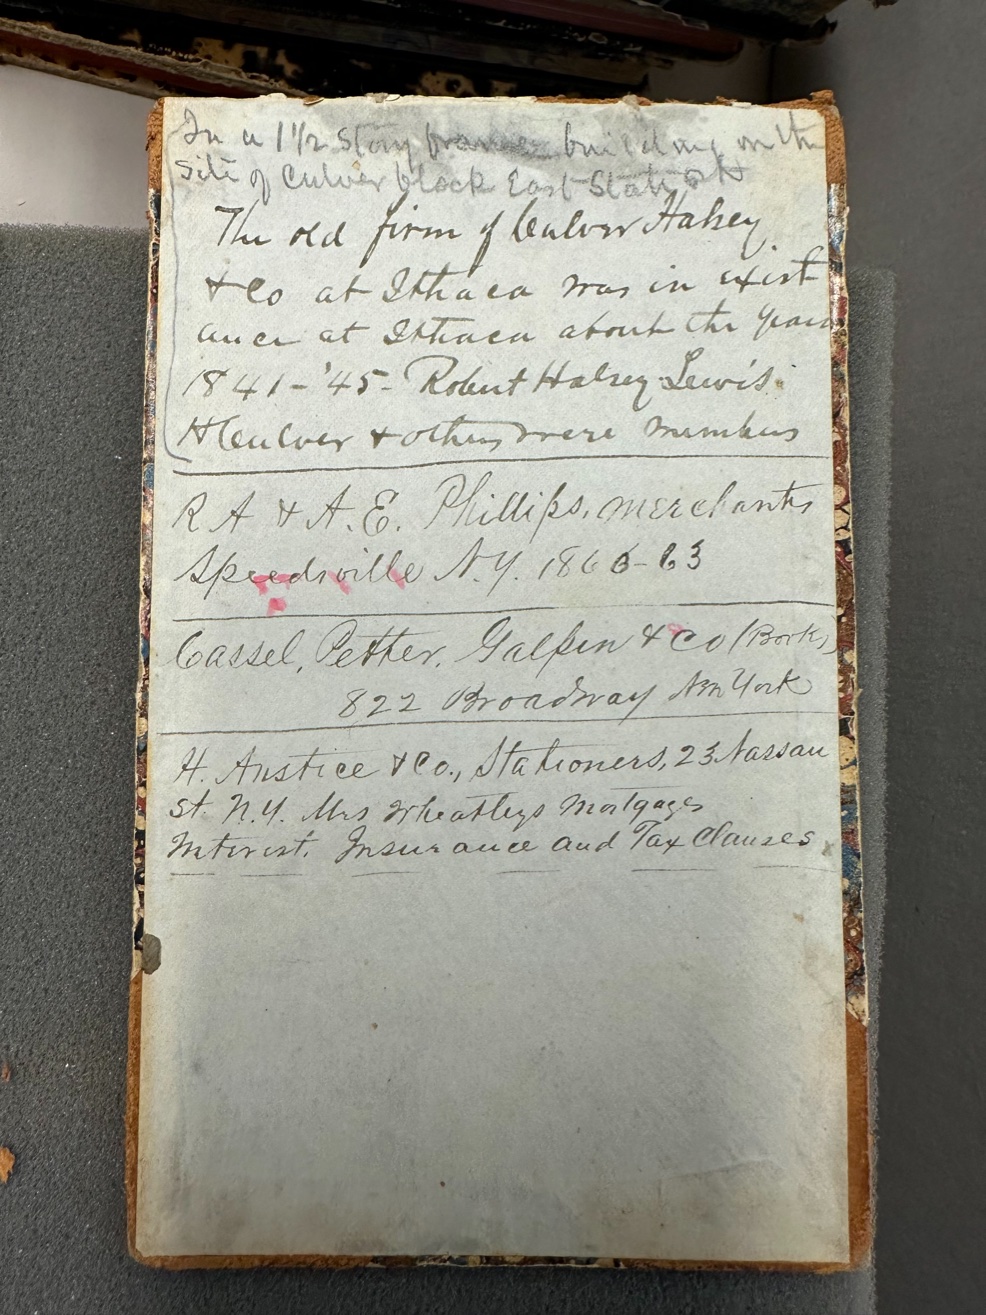 In a 1 1/2 story frame building on the
site of Culver block East State St
The old firm of Culver Halsey
& Co at Ithaca was in exist
ance at Ithaca about the years
1841-'45- Robert Halsey Lewis.
H Culver & others were members
R A & A. E. Phillips, merchants
Speedsville N.Y. 1860-63
Cassel, Petter, Galpin & Co (Books)
822 Broadway New York
H. Anstice & Co., Stationers, 23 Nassau
st. N.Y. Mrs Wheatleys Mortgages
Interest. Insurance and Tax Clauses